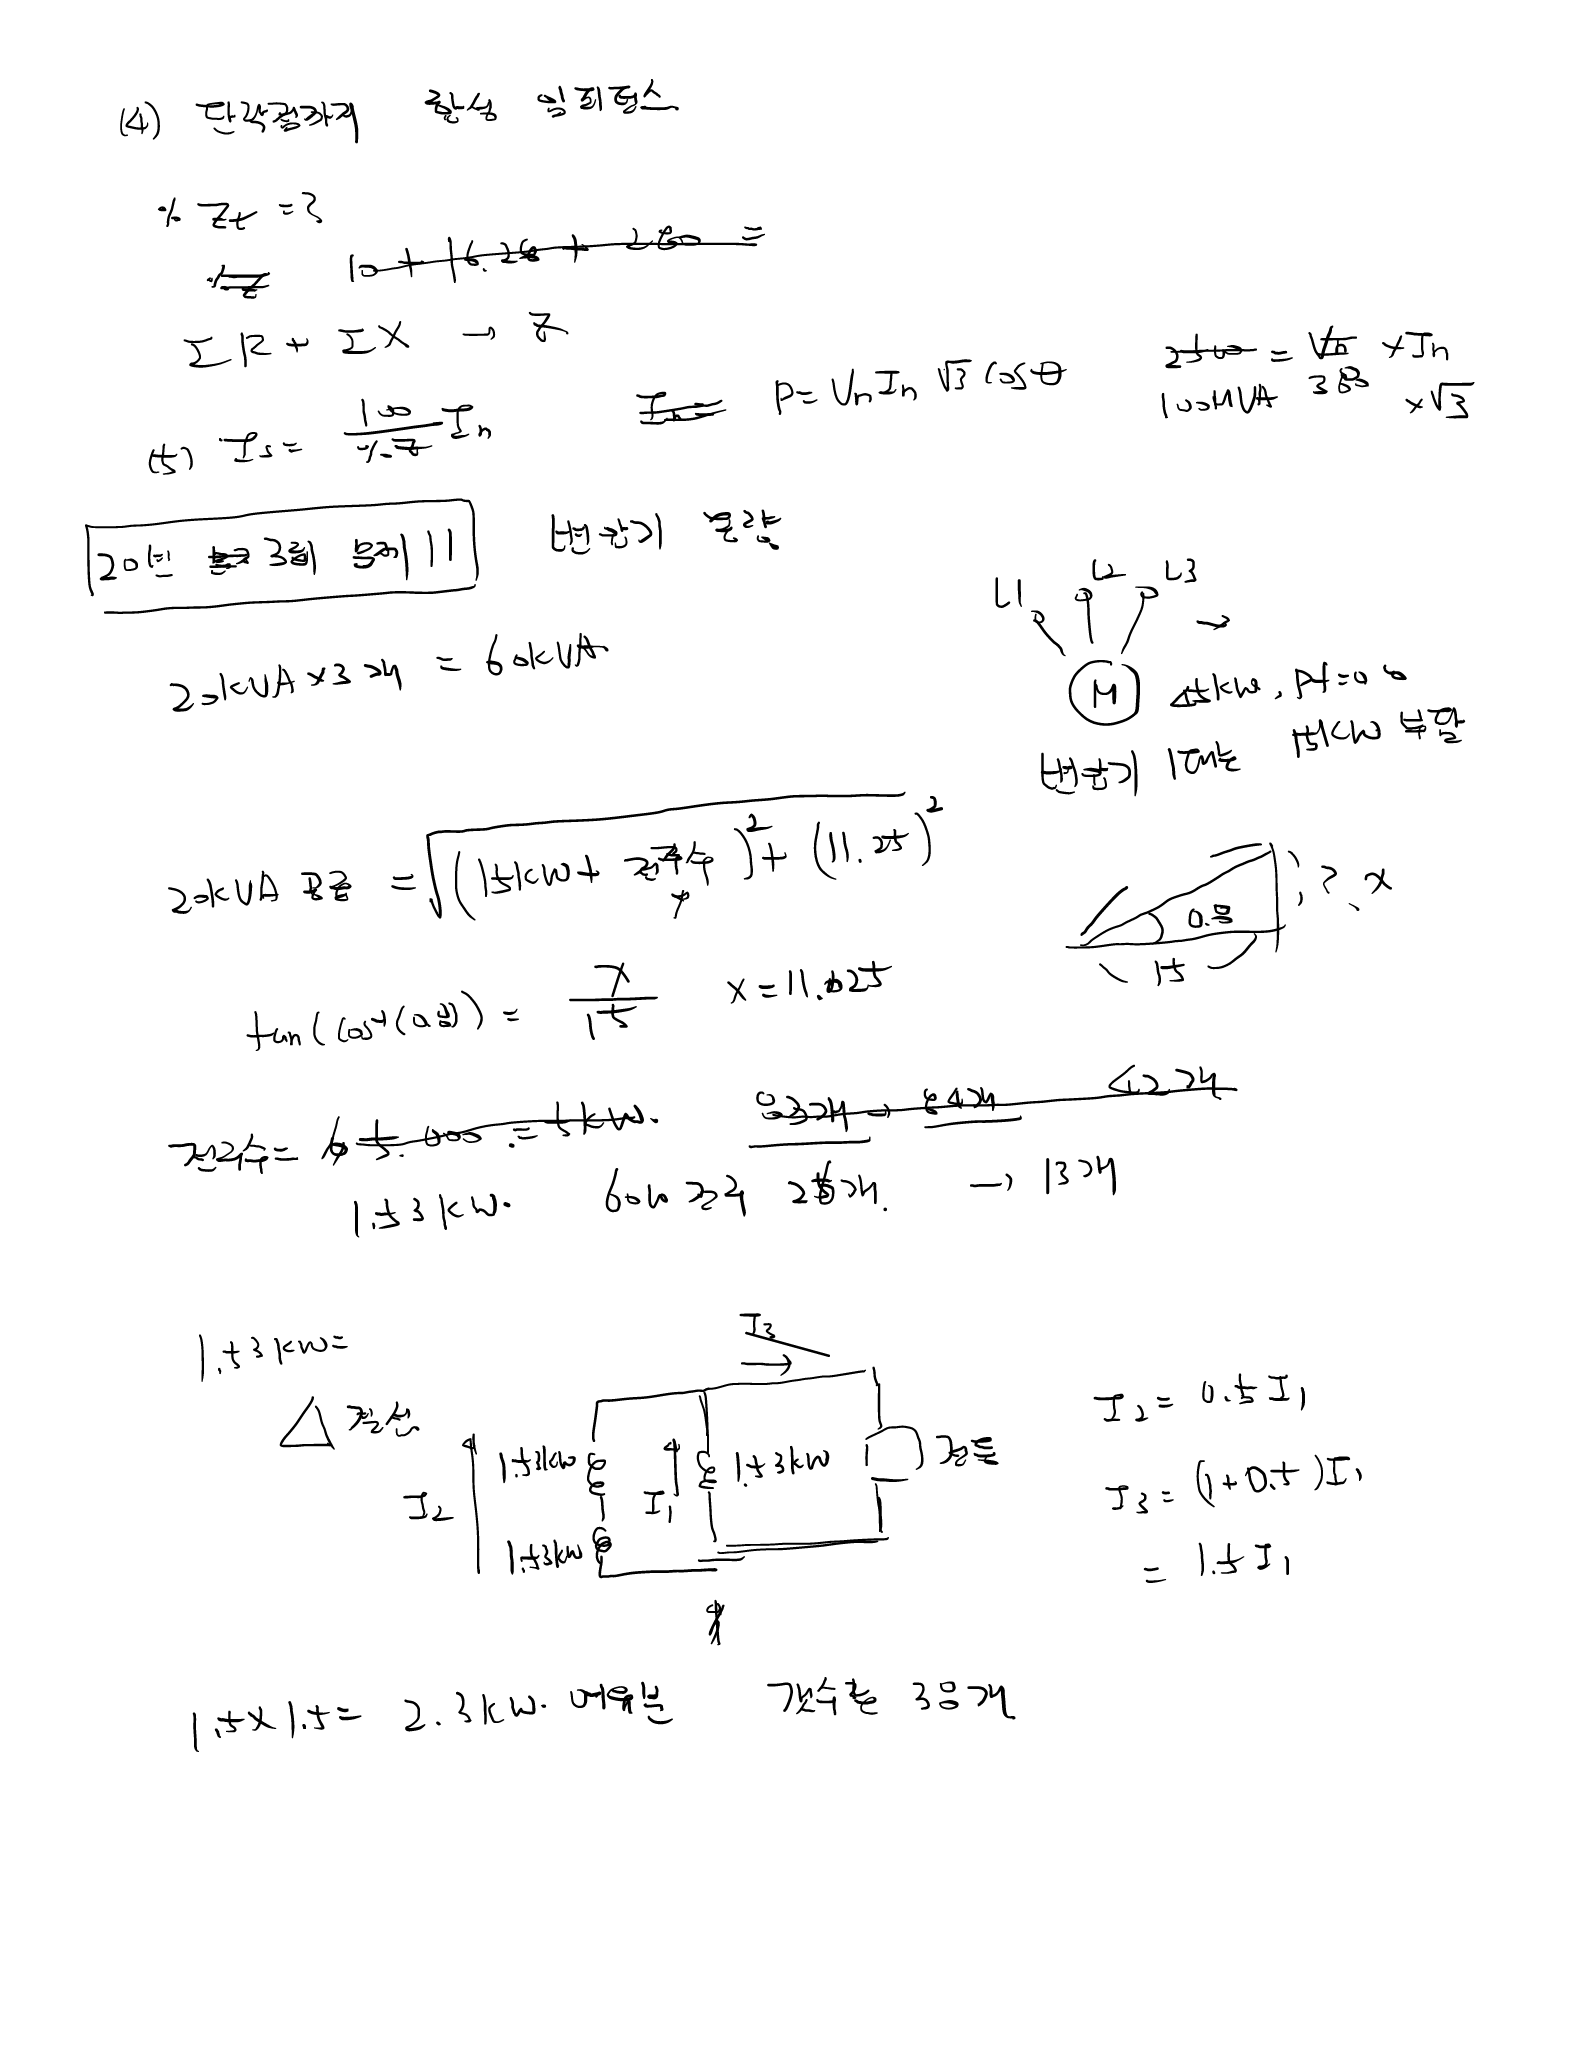 (4) 단락점까지 합성 임피던스
% Zt = ?
%Z 10 + 16.28 + 280 =
ΣR + ΣX → Z
(5) Is = 100/%Z In
In = P = Vn In √3 cosθ
2500 = Vn × In
100MVA 380 × √3
20번 3회 문제 11 변압기 용량
20kVA × 3개 = 60kVA
L1 L2 L3 →
M 45kW, Pf=0.8
변압기 1대는 15kW 부담
20kVA 용량 = √(15kW + 전구수)² + (11.25)²
0.8 ? x
15
tan(cos⁻¹(0.8)) = x/15 x = 11.25
전구수 = 5.000 = 5kW. 83개 → 84개 42개
1.53kW. 60W 전구 25개. → 13개
1.53kW =
△ 결선
I3
I2 1.53kW I1 1.53kW 전등
1.53kW
I2 = 0.5 I1
I3 = (1+0.5) I1
= 1.5 I1
1.5 × 1.5 = 2.3kW. 여유분 갯수는 38개